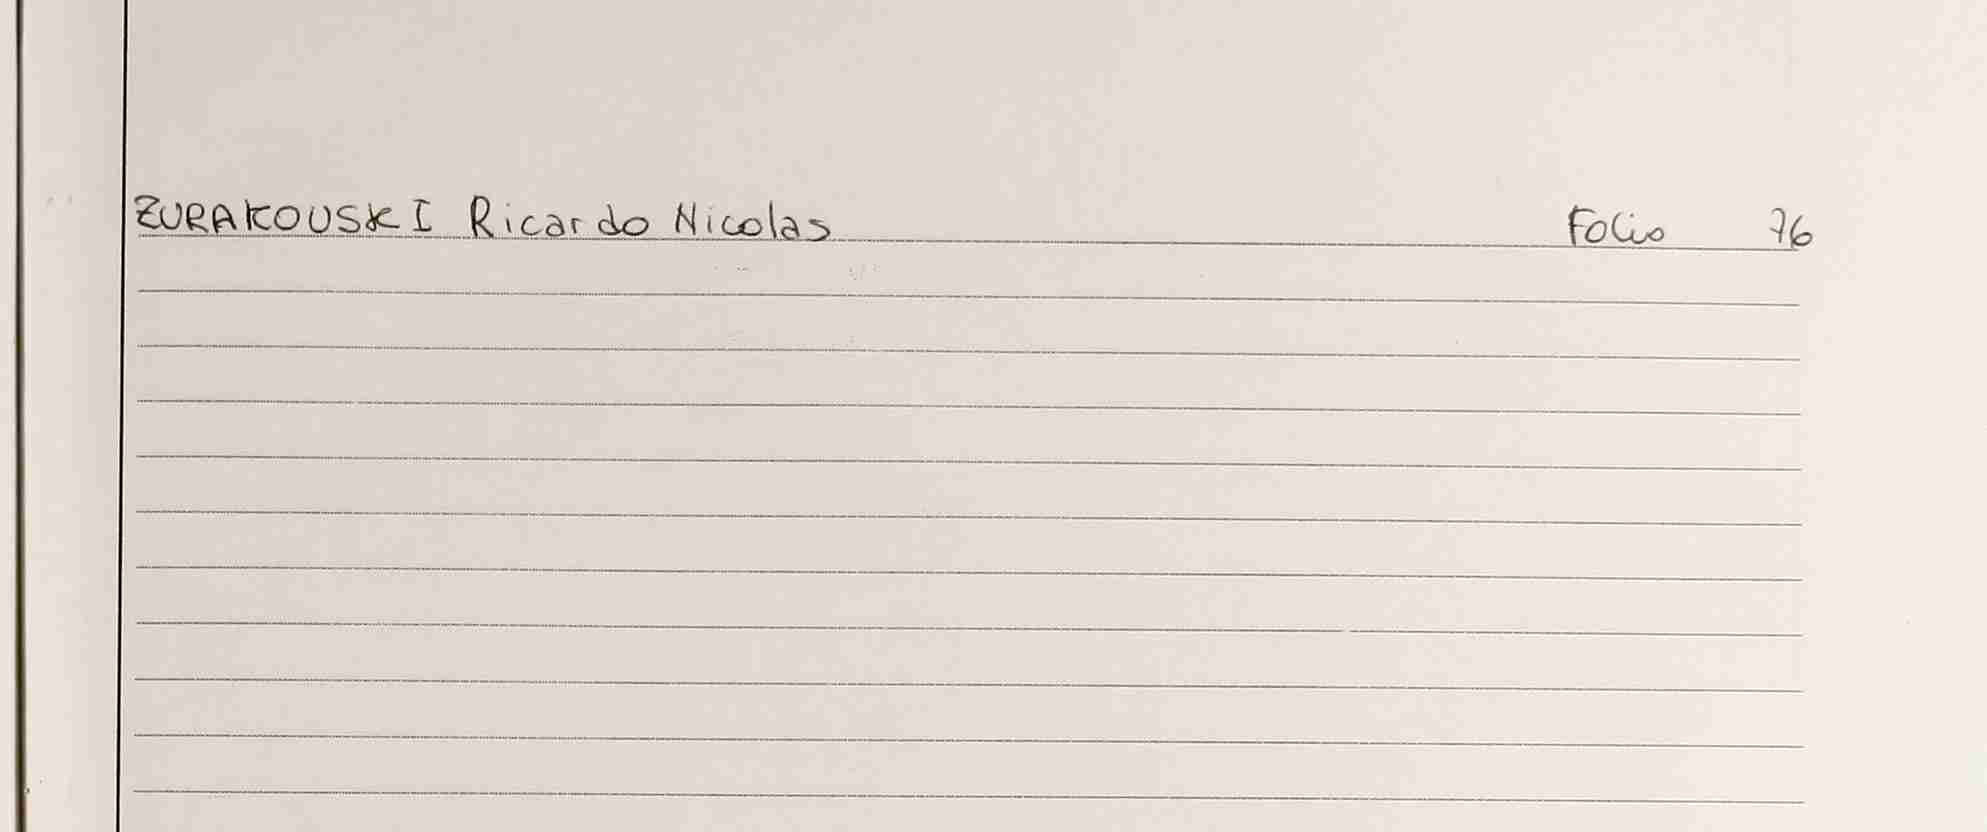 ZURAKOUSKI Ricardo Nicolas Folio 76